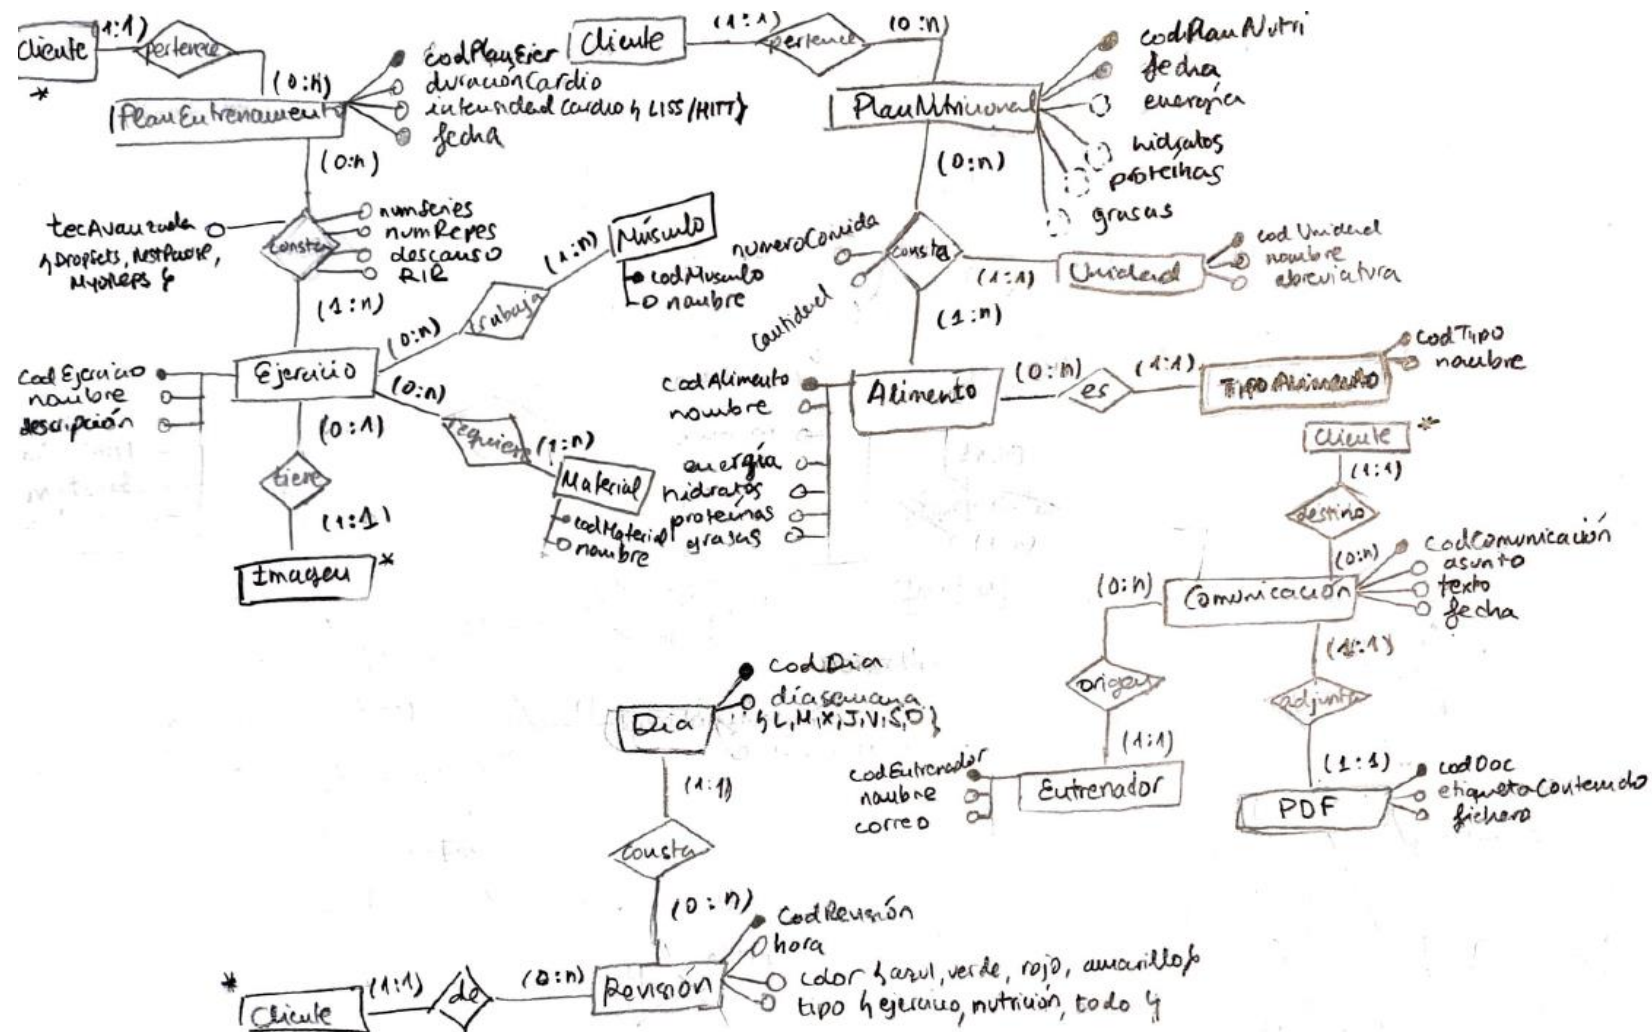 Cliente
(1:1)
pertenece
(0:n)
PlanEntrenamiento
codPlanEjer
duraciónCardio
intensidad cardio { LISS/HITT}
fecha
(0:n)
consta
tecAvanzada
{Dropsets, RestPause,
MyoReps }
numSeries
numRepes
descanso
RIR
(1:n)
Ejercicio
codEjercicio
nombre
descripción
(0:n)
trabaja
(1:n)
Músculo
codMusculo
nombre
(0:n)
requiere
(1:n)
Material
codMaterial
nombre
(0:1)
tiene
(1:1)
Imagen
*
*
Cliente
(1:1)
pertenece
(0:n)
PlanNutricional
codPlanNutri
fecha
energía
hidratos
proteínas
grasas
(0:n)
consta
numeroComida
cantidad
(1:1)
Unidad
codUnidad
nombre
abreviatura
(1:n)
Alimento
codAlimento
nombre
energía
hidratos
proteínas
grasas
(0:n)
es
(1:1)
TipoAlimento
codTipo
nombre
Cliente
*
(1:1)
destino
(0:n)
Comunicación
codComunicación
asunto
texto
fecha
(0:n)
origen
(1:1)
Entrenador
codEntrenador
nombre
correo
(1:1)
adjunta
(1:1)
PDF
codDoc
etiquetaContenido
fichero
Dia
codDia
díasemana
{L,M,X,J,V,S,D}
(1:1)
consta
(0:n)
Revisión
codRevisión
hora
color {azul, verde, rojo, amarillo}
tipo {ejercicio, nutrición, todo }
*
Cliente
(1:1)
de
(0:n)